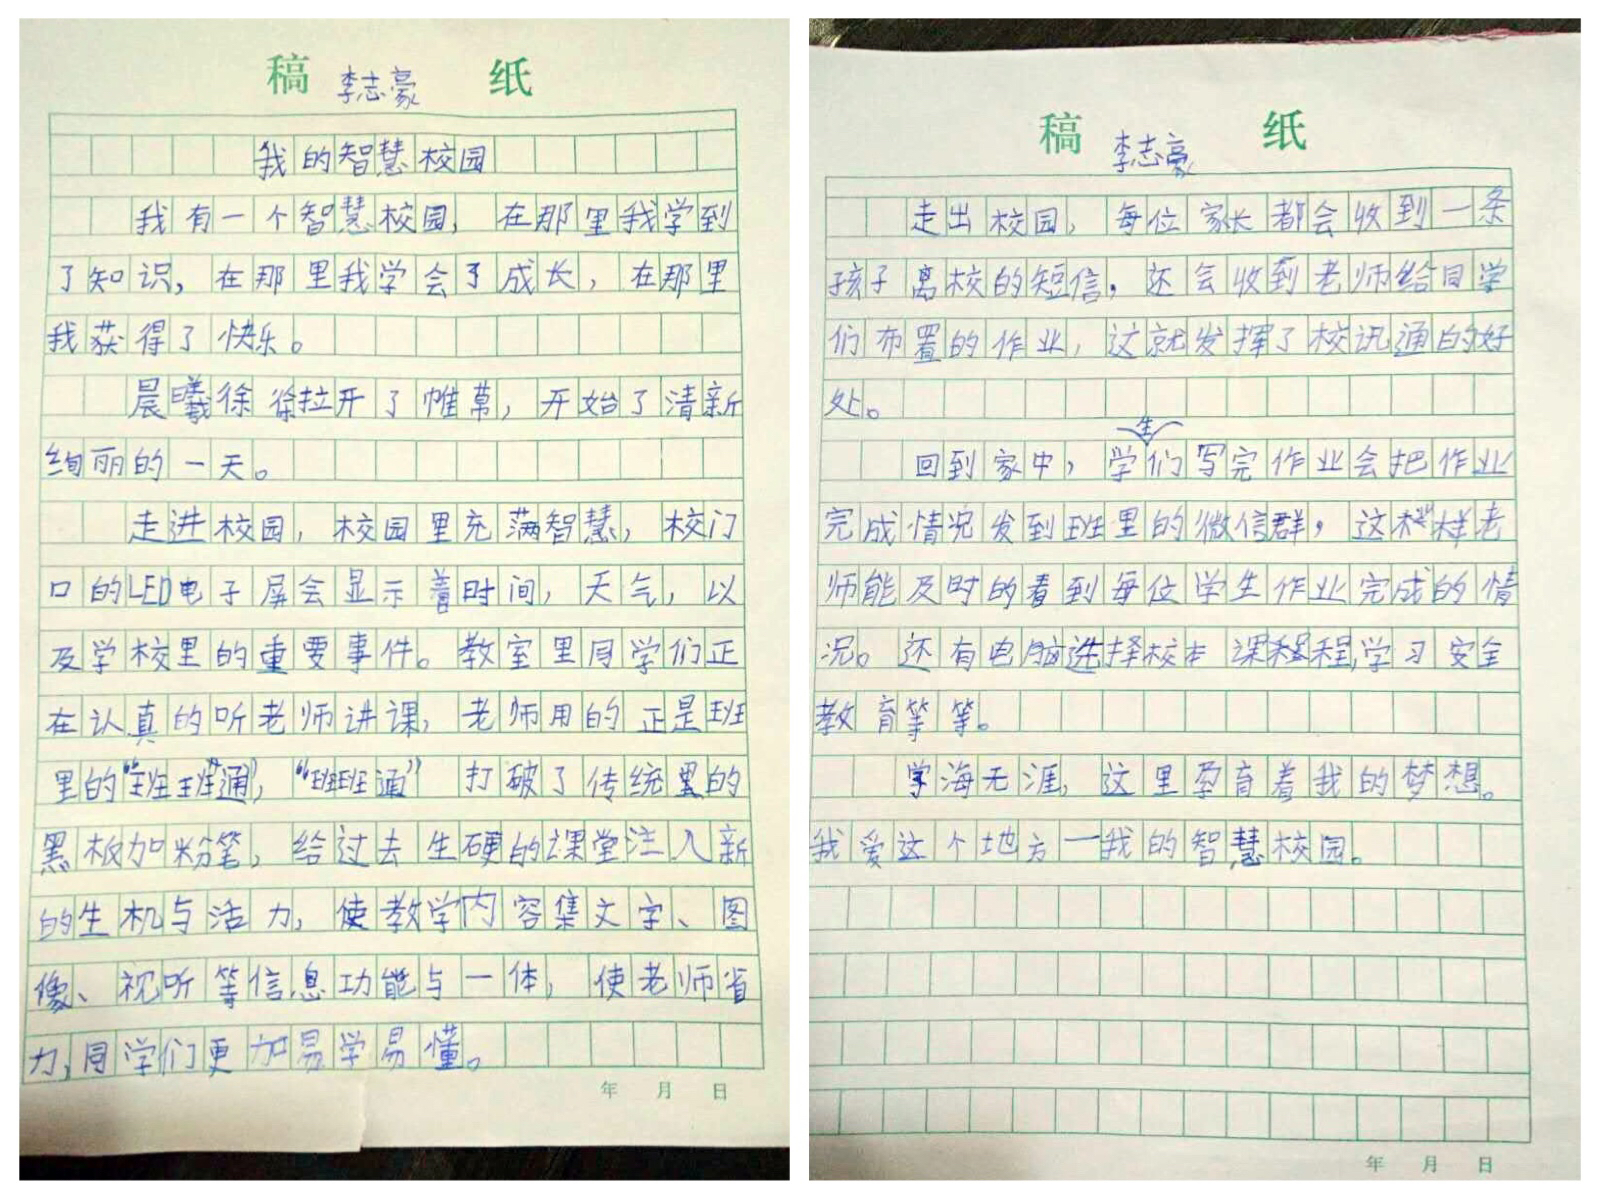 稿 李志豪 纸
我的智慧校园
我有一个智慧校园，在那里我学到
了知识，在那里我学会了成长，在那里
我获得了快乐。
晨曦徐徐拉开了帷幕，开始了清新
绚丽的一天。
走进校园，校园里充满智慧，校门
口的LED电子屏会显示着时间，天气，以
及学校里的重要事件。教室里同学们正
在认真的听老师讲课，老师用的正是班
里的“班班通”，“班班通”打破了传统的
黑板加粉笔，给过去生硬的课堂注入新
的生机与活力，使教学内容集文字、图
像、视听等信息功能与一体，使老师省
力，同学们更加易学易懂。
年 月 日
稿 李志豪 纸
走出校园，每位家长都会收到一条
孩子离校的短信，还会收到老师给同学
们布置的作业，这就发挥了校讯通的好
处。
回到家中，学生们写完作业会把作业
完成情况发到班里的微信群，这样老
师能及时的看到每位学生作业完成的情
况。还有电脑选择校本课程，学习安全
教育等等。
学海无涯，这里孕育着我的梦想。
我爱这个地方一我的智慧校园。
年 月 日